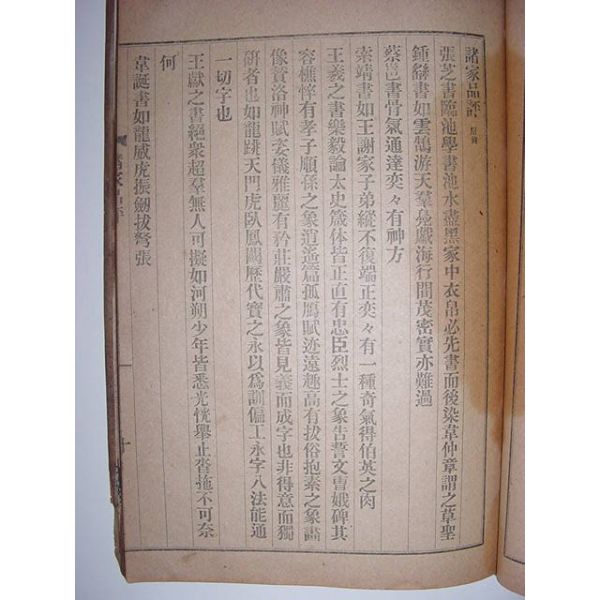 諸家品評
張芝書臨池學書池水盡黑家中衣帛必先書而後染韋仲章謂之草聖
鍾繇書如雲鵠游天羣鳧戲海行間茂密實亦難過
蔡邕書骨氣通達奕々有神方
索靖書如王謝家子弟縱不復端正奕々有一種奇氣得伯英之肉
王羲之書樂毅論太史箴体皆正直有忠臣烈士之象告誓文曹娥碑其
容樵悴有孝子順孫之象逍遙篇孤鴈賦迹遠趣高有拔俗抱素之象畵
像贊洛神賦姿儀雅麗有矜莊嚴肅之象皆見義而成字也非得意而獨
研者也如龍跳天門虎臥鳳闕歷代寶之永以爲訓偏工永字八法能通
一切字也
王獻之書絕衆超羣無人可擬如河朔少年皆悉光恍舉止沓拖不可奈
何
韋誕書如龍威虎振劒拔弩張